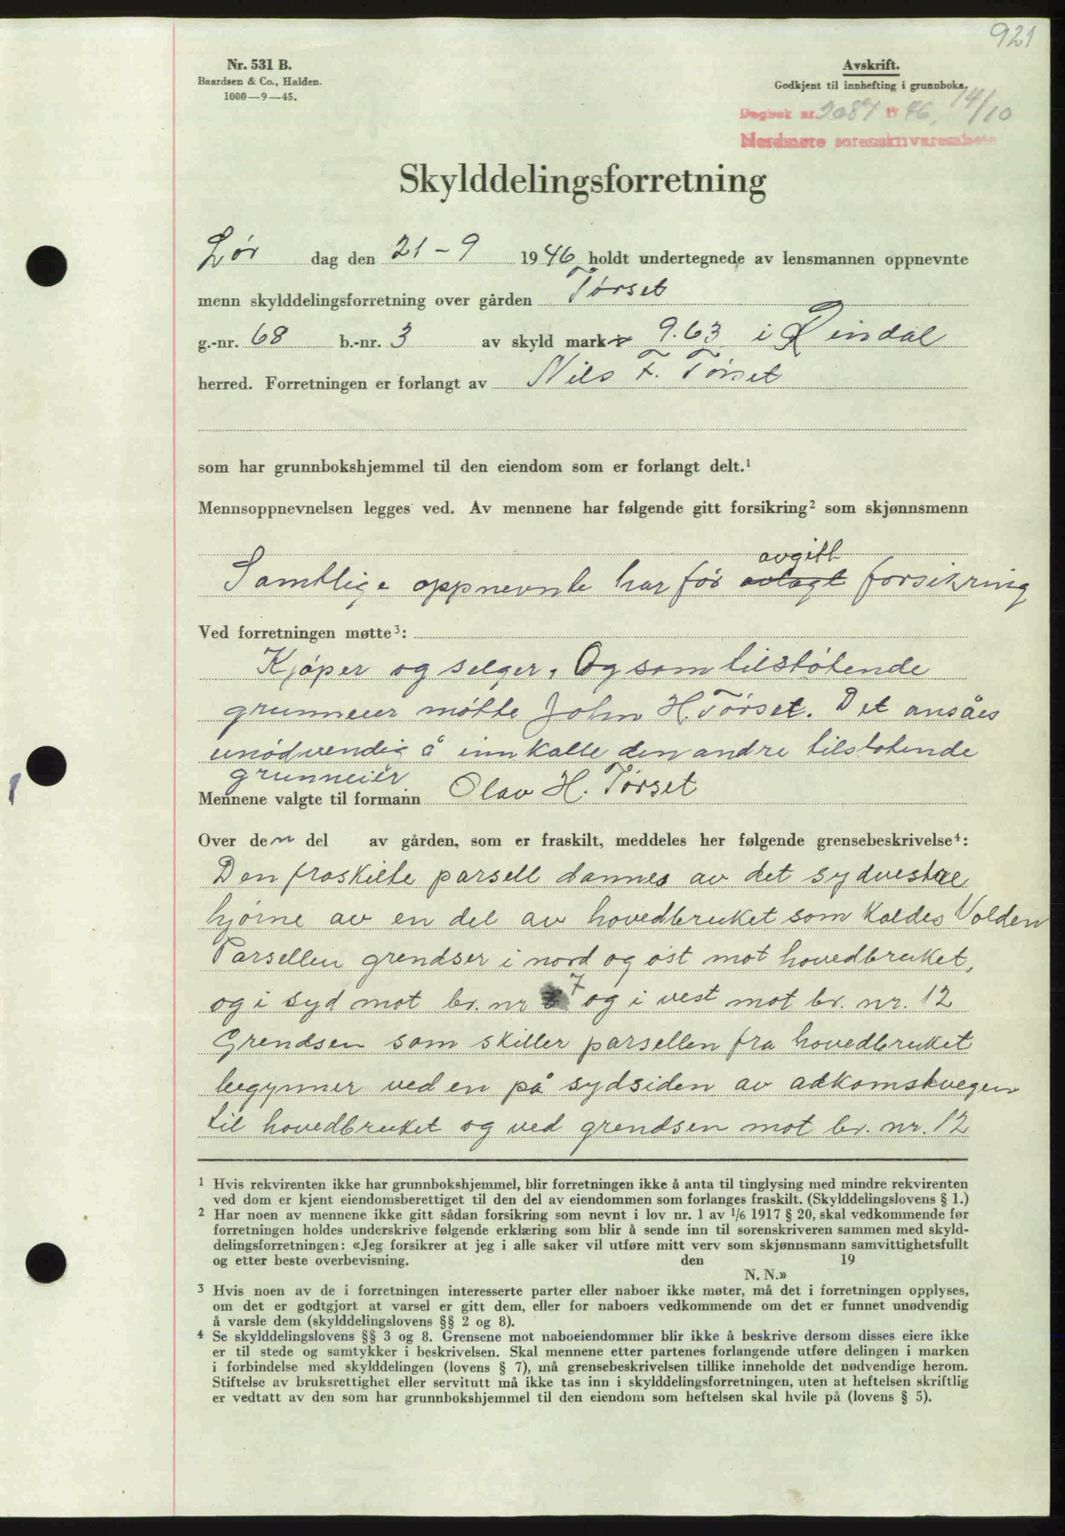 921
Nr. 531 B.
Baardsen & Co., Halden.
1000—9—45.
Avskrift.
Godkjent til innhefting i grunnboka,
Dagbok nr. 2087 19 46, 14/10
Nordmøre sorenskriverembete
Skylddelingsforretning
Lør dag den 21 - 9 1946 holdt undertegnede av lensmannen oppnevnte
menn skylddelingsforretning over gården Tørset
g.-nr. 68 b.-nr. 3 av skyld mark 9.63 i Rindal
herred. Forretningen er forlangt av Nils F. Tørset
som har grunnbokshjemmel til den eiendom som er forlangt delt.¹
Mennsoppnevnelsen legges ved. Av mennene har følgende gitt forsikring² som skjønnsmenn
avgitt
Samtlige oppnevnte har før avlagt forsikring
Ved forretningen møtte³:
Kjøper og selger, Og som tilstøtende
grunneier møtte John H. Tørset. Det ansåes
unødvendig å innkalle den andre tilstøtende
grunneier
Mennene valgte til formann Olav H. Tørset
Over den del av gården, som er fraskilt, meddeles her følgende grensebeskrivelse⁴:
Den fraskilte parsell dannes av det sydvestre
hjørne av en del av hovedbruket som kaldes Volden
Parsellen grendser i nord og øst mot hovedbruket,
og i syd mot br. nr 7 og i vest mot br. nr. 12
Grendsen som skiller parsellen fra hovedbruket
begynner ved en på sydsiden av adkomstvegen
til hovedbruket og ved grendsen mot br. nr. 12
¹ Hvis rekvirenten ikke har grunnbokshjemmel, blir forretningen ikke å anta til tinglysing med mindre rekvirenten
ved dom er kjent eiendomsberettiget til den del av eiendommen som forlanges fraskilt. (Skylddelingslovens § 1.)
² Har noen av mennene ikke gitt sådan forsikring som nevnt i lov nr. 1 av 1/6 1917 § 20, skal vedkommende før
forretningen holdes underskrive følgende erklæring som blir å sende inn til sorenskriveren sammen med skyld-
delingsforretningen: «Jeg forsikrer at jeg i alle saker vil utføre mitt verv som skjønnsmann samvittighetsfullt
og etter beste overbevisning. den 19
N. N.»
³ Hvis noen av de i forretningen interesserte parter eller naboer ikke møter, må det i forretningen opplyses,
om det er godtgjort at varsel er gitt dem, eller for naboers vedkommende om det er funnet unødvendig
å varsle dem (skylddelingslovens §§ 2 og 8).
⁴ Se skylddelingslovens §§ 3 og 8. Grensene mot naboeiendommer blir ikke å beskrive dersom disses eiere ikke
er til stede og samtykker i beskrivelsen. Skal mennene etter partenes forlangende utføre delingen i marken
i forbindelse med skylddelingen (lovens § 7), må grensebeskrivelsen tillike inneholde det nødvendige herom.
Stiftelse av bruksrettighet eller servitutt må ikke tas inn i skylddelingsforretningen, uten at heftelsen skriftlig
er vedtatt av den som har grunnbokshjemmel til den eiendom som heftelsen skal hvile på (lovens § 5).